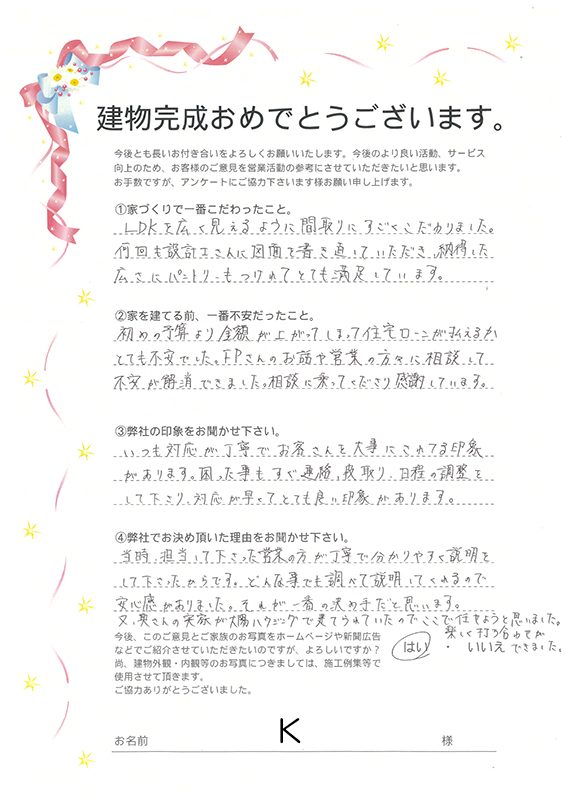 建物完成おめでとうございます。
今後とも長いお付き合いをよろしくお願いいたします。今後のより良い活動、サービス
向上のため、お客様のご意見を営業活動の参考にさせていただきたいと思います。
お手数ですが、アンケートにご協力下さいます様お願い申し上げます。
①家づくりで一番こだわったこと。
LDKを広く見えるように間取りにすごくこだわりました。
何回も設計士さんに図面を書き直していただき、納得した
広さにパントリーもつけれてとても満足しています。
②家を建てる前、一番不安だったこと。
初めの予算より金額が上がってしまって住宅ローンが払えるか
とても不安でした。FPさんのお話や営業の方々に相談して
不安が解消できました。相談に乗ってくださり感謝しています。
③弊社の印象をお聞かせ下さい。
いつも対応が丁寧でお客さんを大事にされてる印象
があります。困った事もすぐ連絡、段取り、日程の調整を
して下さり、対応が早くてとても良い印象があります。
④弊社でお決め頂いた理由をお聞かせ下さい。
当時、担当して下さった営業の方が丁寧で分かりやすく説明を
して下さったからです。どんな事でも調べて説明してくれるので
安心感がありました。それが一番の決め手だと思います。
又、奥さんの実家が太陽ハウジングで建てられていたのでここで住もうと思いました。
楽しく打ち合わせが
できました。
今後、このご意見とご家族のお写真をホームページや新聞広告
などでご紹介させていただきたいのですが、よろしいですか？
はい ・ いいえ
尚、建物外観・内観等のお写真につきましては、施工例集等で
使用させて頂きます。
ご協力ありがとうございました。
お名前 K 様